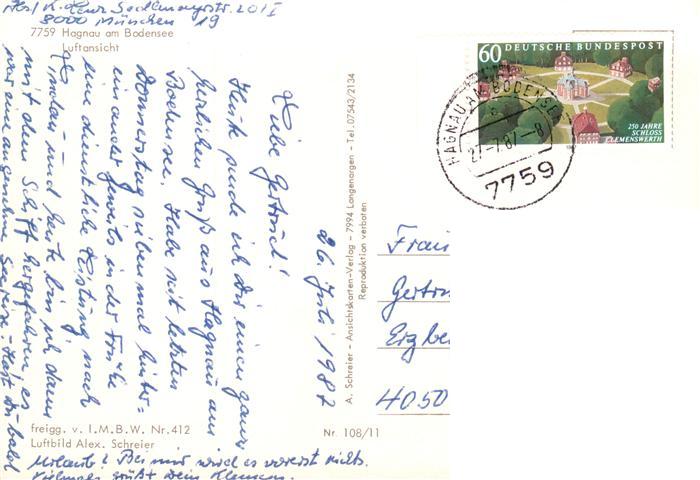 Abs/ K. Lenz Sedlmayrstr. 20/I
8000 München 19
7759 Hagnau am Bodensee
Luftansicht
26. Juli 1987
Liebe Gertrud!
Heute sende ich Dir einen ganz
herzlichen Gruß aus Hagnau am
Bodensee. Habe seit letzten
Donnerstag siebenmal hinter-
einander jeweils in der Frühe
eine dienstliche Leistung nach
Lindau und heute bin ich dann
mit dem Schiff hergefahren, es
war eine angenehme Seereise. Hast Du bald
Urlaub? Bei mir wird es vorerst nichts.
Vielmals grüßt Dein Klemens.
freigg. v. I.M.B.W. Nr.412
Luftbild Alex. Schreier
Nr. 108/11
A. Schreier - Ansichtskarten-Verlag - 7994 Langenargen - Tel. 07543/2134
Reproduktion verboten
60 DEUTSCHE BUNDESPOST
250 JAHRE
SCHLOSS
CLEMENSWERTH
HAGNAU AM BODENSEE
27.-7.87.-8
7759
Frau
Gertru
Erzbe
4050